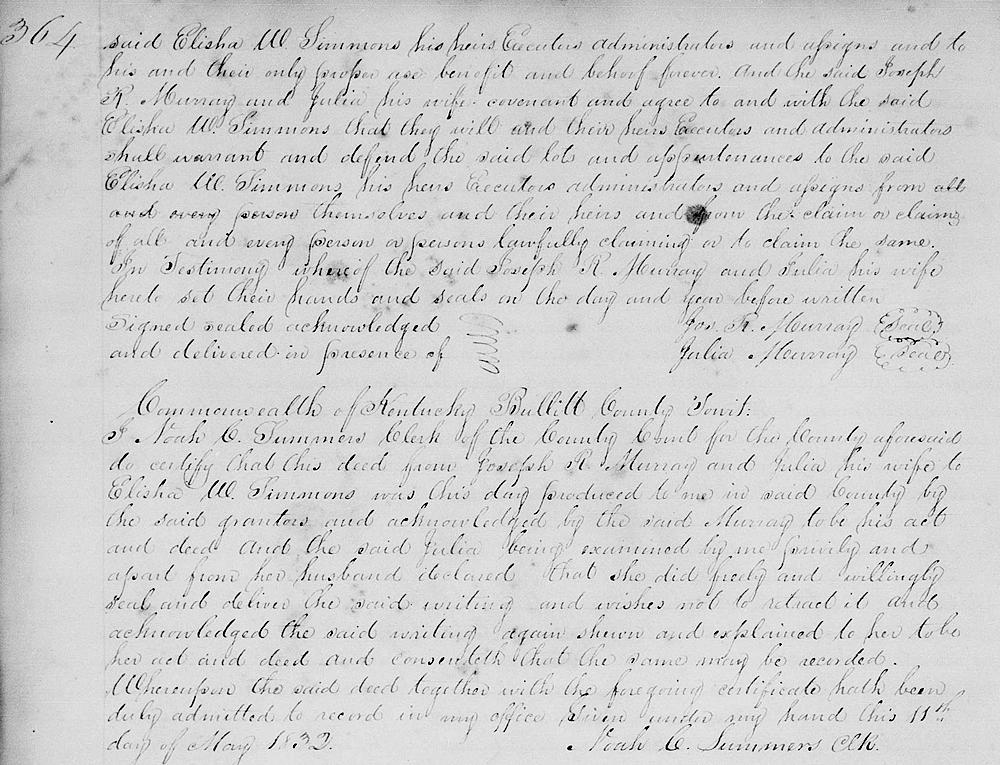 364
said Elisha W. Simmons his heirs Executors administrators and assigns and to
his and their only proper use benefit and behoof forever. And the said Joseph
R. Murray and Julia his wife covenant and agree to and with the said
Elisha W. Simmons that they will and their heirs Executors and administrators
shall warrant and defend the said lots and appurtenances to the said
Elisha W. Simmons his heirs Executors administrators and assigns from all
and every person themselves and their heirs and from the claim or claims
of all and every person or persons lawfully claiming or to claim the same.
In Testimony whereof the said Joseph R. Murray and Julia his wife
hereto set their hands and seals on the day and year before written
Signed sealed acknowledged Jos. R. Murray Seal
and delivered in presence of Julia Murray Seal
Commonwealth of Kentucky Bullitt County Towit:
I Noah C. Summers Clerk of the County Court for the County aforesaid
do certify that this deed from Joseph R. Murray and Julia his wife to
Elisha W. Simmons was this day produced to me in said County by
the said grantors and acknowledged by the said Murray to be his act
and deed And the said Julia being examined by me privily and
apart from her husband declared that she did freely and willingly
seal and deliver the said writing and wishes not to retract it and
acknowledged the said writing again shewn and explained to her to be
her act and deed and consenteth that the same may be recorded.
Whereupon the said deed together with the foregoing certificate hath been
duly admitted to record in my office Given under my hand this 11th
day of May 1832. Noah C. Summers Clk.